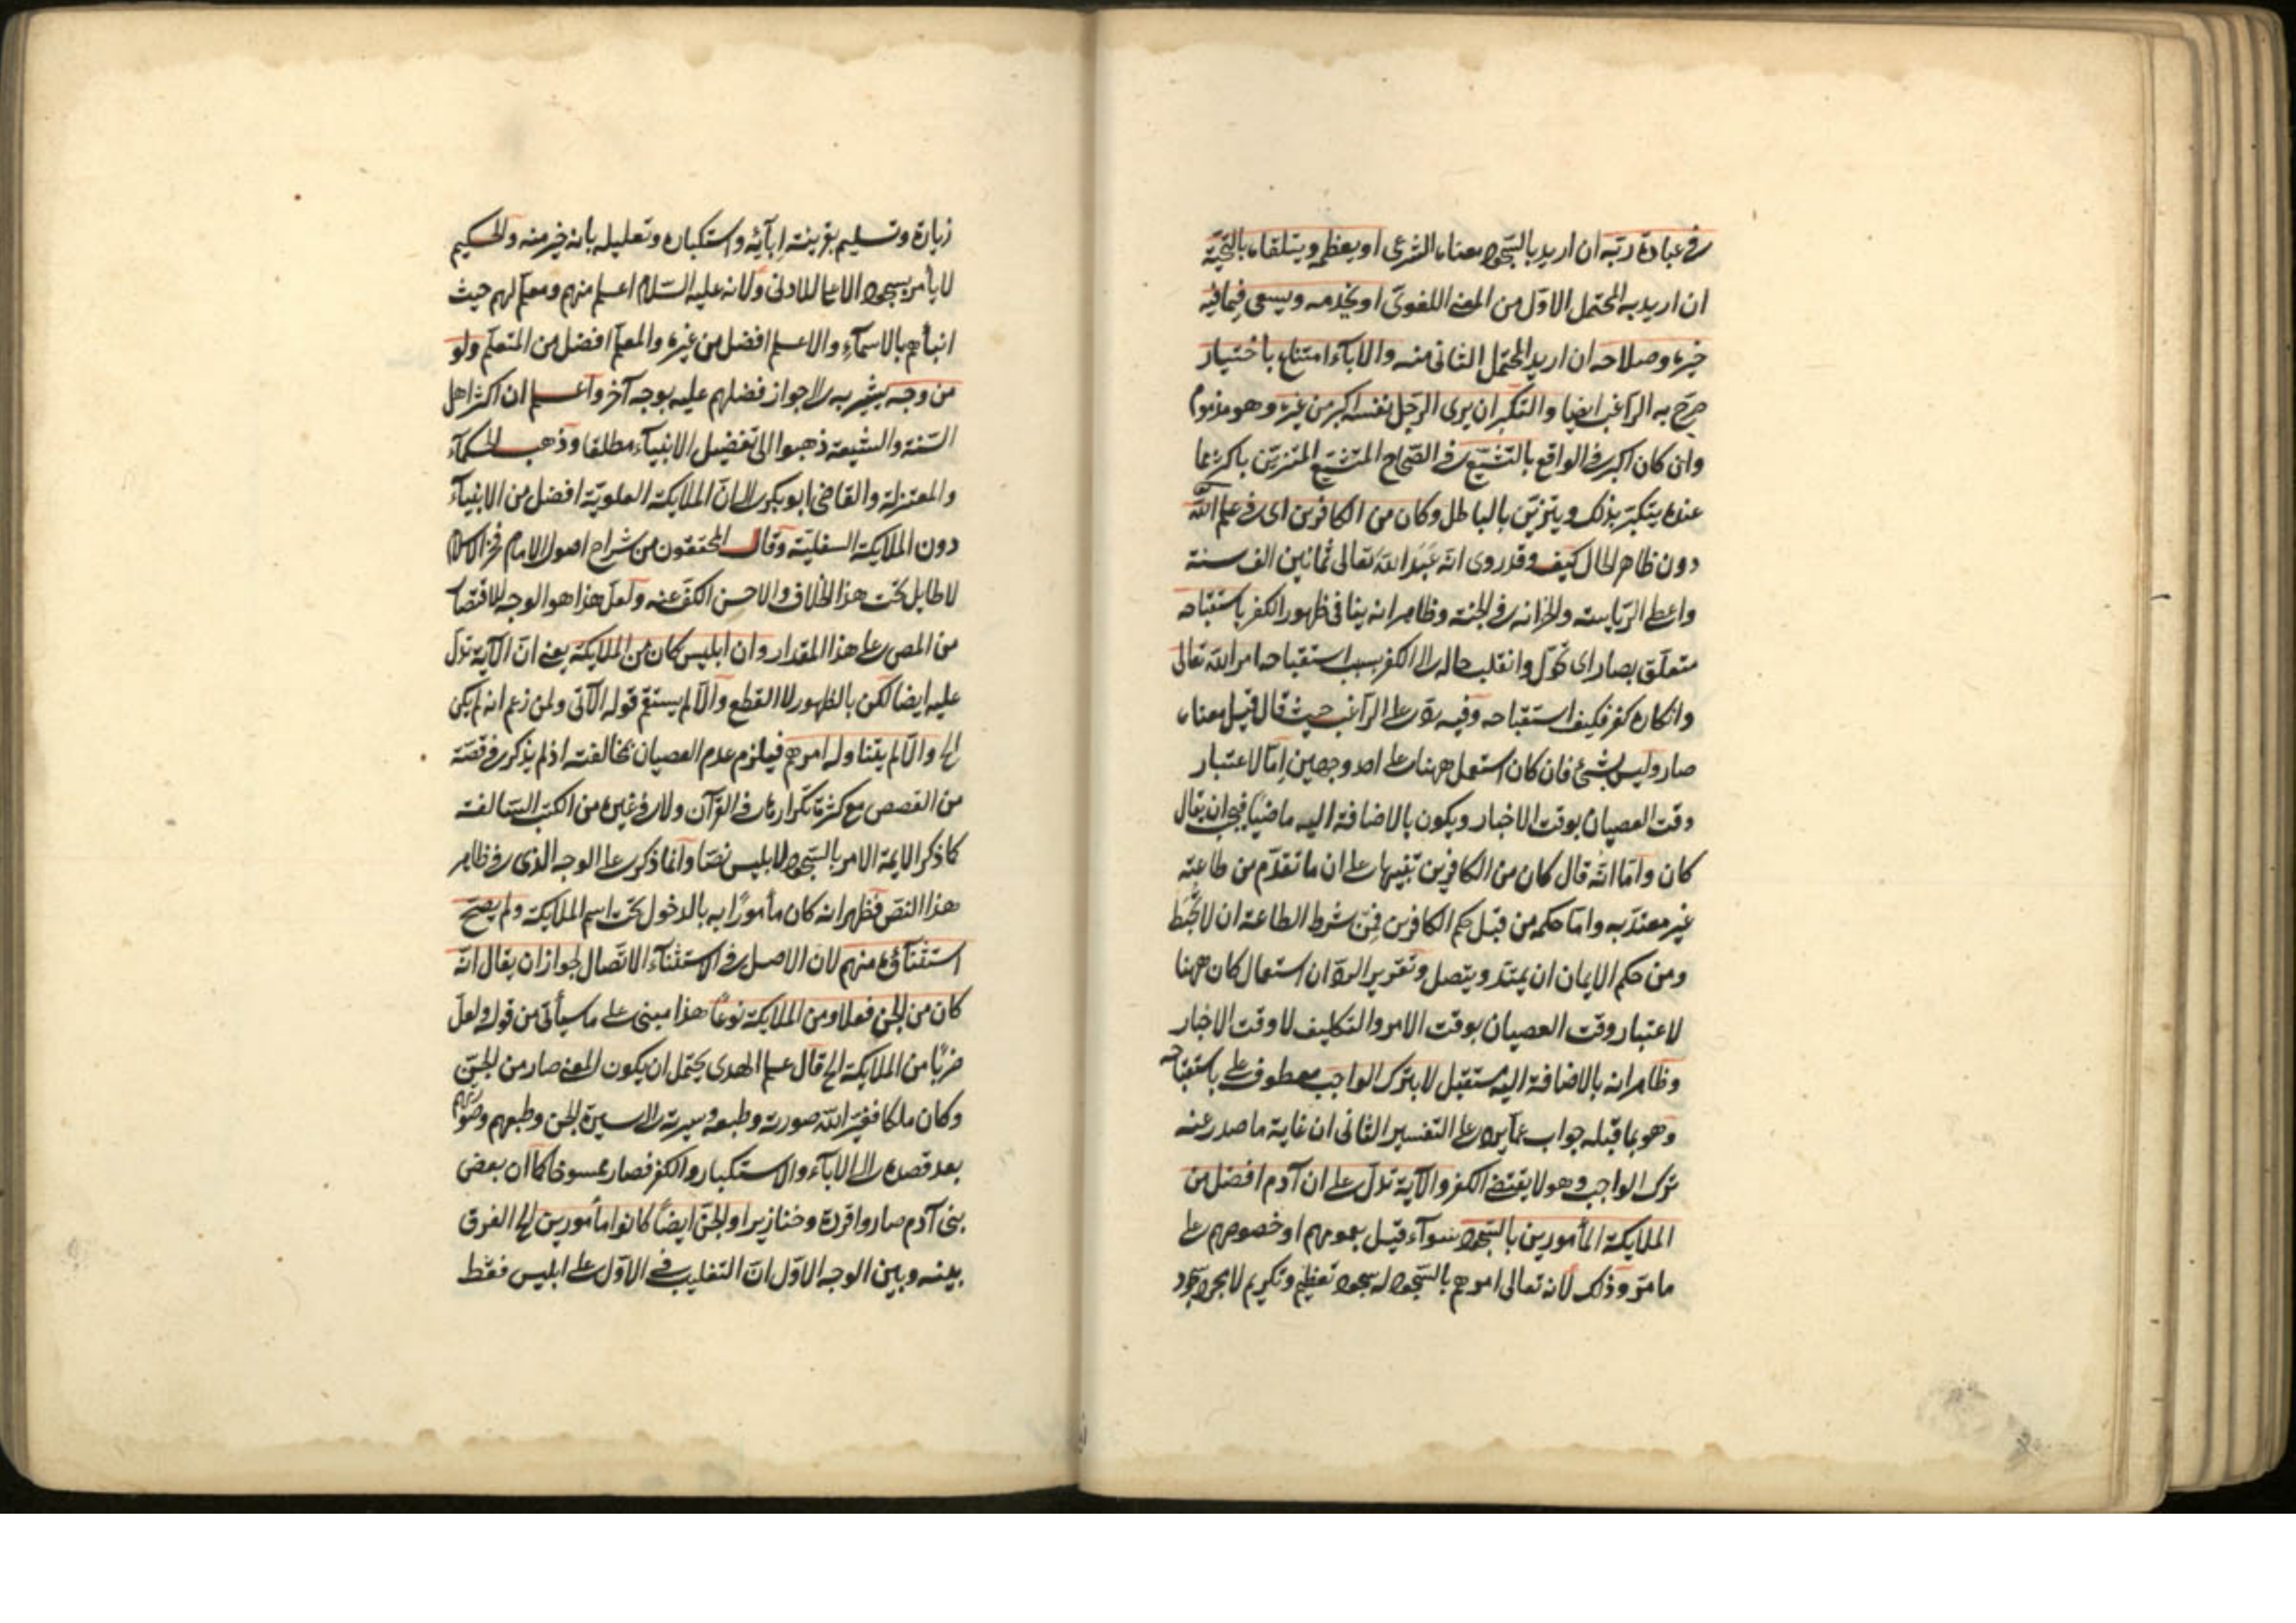 في عبادة ربّه ان اريد بالسّجود معناه الشرعى او يعظمه ويتلقاه بالتحيّة
ان اريد به المحتمل الاوّل من المعنى اللغوىّ او يخدمه ويسعى فيما فيه
خيره وصلاحه ان اريد المحتمل الثانى منه والاباء امتناع باختيار
صرّح به الراغب ايضا والتكبر ان يرى الرجل نفسه اكبر من غيره وهو مذموم
وان كان اكبر في الواقع بالتشبّع في الصّحاح المتشبّع المتزيّن باكثر مما
عنده يتكبّر بذلك ويتزيّن بالباطل وكان من الكافرين اى في علم الله
دون ظاهر الحال كيف وقد روى انّه عَبَدَ الله تعالى ثمانين الف سنة
واعطى الرّياسة والخزانة في الجنة وظاهر انه ينافى ظهور الكفر باستقباحه
متعلّق بصار اى تحوّل وانقلب حاله الى الكفر بسبب استقباحه امر الله تعالى
وانكاره كفر فكيف استقباحه وفيه ردّ على الرّاغب حيث قال قيل معناه
صار وليس بشئ فان كان استعمل ههنا على احد وجهين اِمّا لاعتبار
وقت العصيان بوقت الاخبار ويكون بالاضافة اليه ماضيا فيجب ان يقال
كان وامّا انّه قال كان من الكافرين تنبيها على ان ما تقدّم من طاعته
غير معتدّ به وامّا حكمه من قبل حكم الكافرين فمِن شرط الطاعة ان لا تحبَط
ومن حكم الايمان ان يمتدّ ويتصل وتقرير الردّ ان استعمال كان ههنا
لاعتبار وقت العصيان بوقت الامر والتكليف لا وقت الاخبار
وظاهر انه بالاضافة اليه مستقبل لا بترك الواجب معطوف على باستقباحه
وهو بما قبله جواب عمّا يرد على التفسير الثانى ان غاية ما صدر عنه
ترك الواجب وهو لا يقتضى الكفر والآية تدلّ على ان آدم افضل من
الملايكة المأمورين بالسّجود سواء قيل بعمومهم او خصوصهم على
ما مرّ وذلك لانه تعالى امرهم بالسّجود له سجود تعظيم وتكريم لا مجرد
زيارة وتسليم بقرينة اِبآئه واستكباره وتعليله بانه خير منه والحكيم
لا يأمر بسجود الاعلى للادنى ولانه عليه السّلام اعلم منهم ومعلّم لهم حيث
انبأهم بالاسمآء والاعلم افضل من غيره والمعلّم افضل من المتعلّم ولو
من وجه يشير به الى جواز فضلهم عليه بوجه آخر واعلم ان اكثر اهل
السّنة والشيعة ذهبوا الى تفضيل الانبيآء مطلقا وذهب الحكمآء
والمعتزلة والقاضى ابو بكر الى انّ الملايكة العلويّة افضل من الانبيآء
دون الملايكة السفليّة وقال المحققون من شراح اصول الامام فخر الاسلام
لا طايل تحت هذا الخلاف والاحسن الكفّ عنه ولعلّ هذا هو الوجه للاقتصار
من المص على هذا المقدار وان ابليس كان من الملايكة يعنى انّ الآية تدلّ
عليه ايضا لكن بالظهور لا القطع والّا لم يستقم قوله الآتى ولمن زعم انه لم يكن
الخ والّا لم يتناوله امرهم فيلزم عدم العصيان بمخالفته اذ لم يذكر في قصّة
من القصص مع كثرة تكرارها في القرآن ولا في غيره من الكتب السّالفة
كما ذكر الايمة الامر بالسّجود لابليس نصّا وانما ذكر على الوجه الذى في ظاهر
هذا النصّ فظهر انه كان مأمورًا به بالدخول تحت اسم الملايكة ولم يصحّ
استثنآئه منهم لان الاصل في الاستثنآء الاتّصال لجواز ان يقال انّه
كان من الجن فعلا ومن الملايكة نوعًا هذا مبنى على ما سيأتى من قوله ولعلّ
ضربًا من الملايكة الخ قال علم الهدى يحتمل ان يكون المعنى صار من الجنّ
وكان ملكا فغيّر الله صورته وطبعه وسيرته الى سيرة الجن وطبعهم وصورهم
بعد قصده الى الابآء والاستكبار والكفر فصار ممسوخا كما ان بعض
بنى آدم صاروا قردة وخنازير او الجنّ ايضًا كانوا مأمورين الخ الفرق
بينه وبين الوجه الاوّل انّ التغليب في الاوّل على ابليس فقط